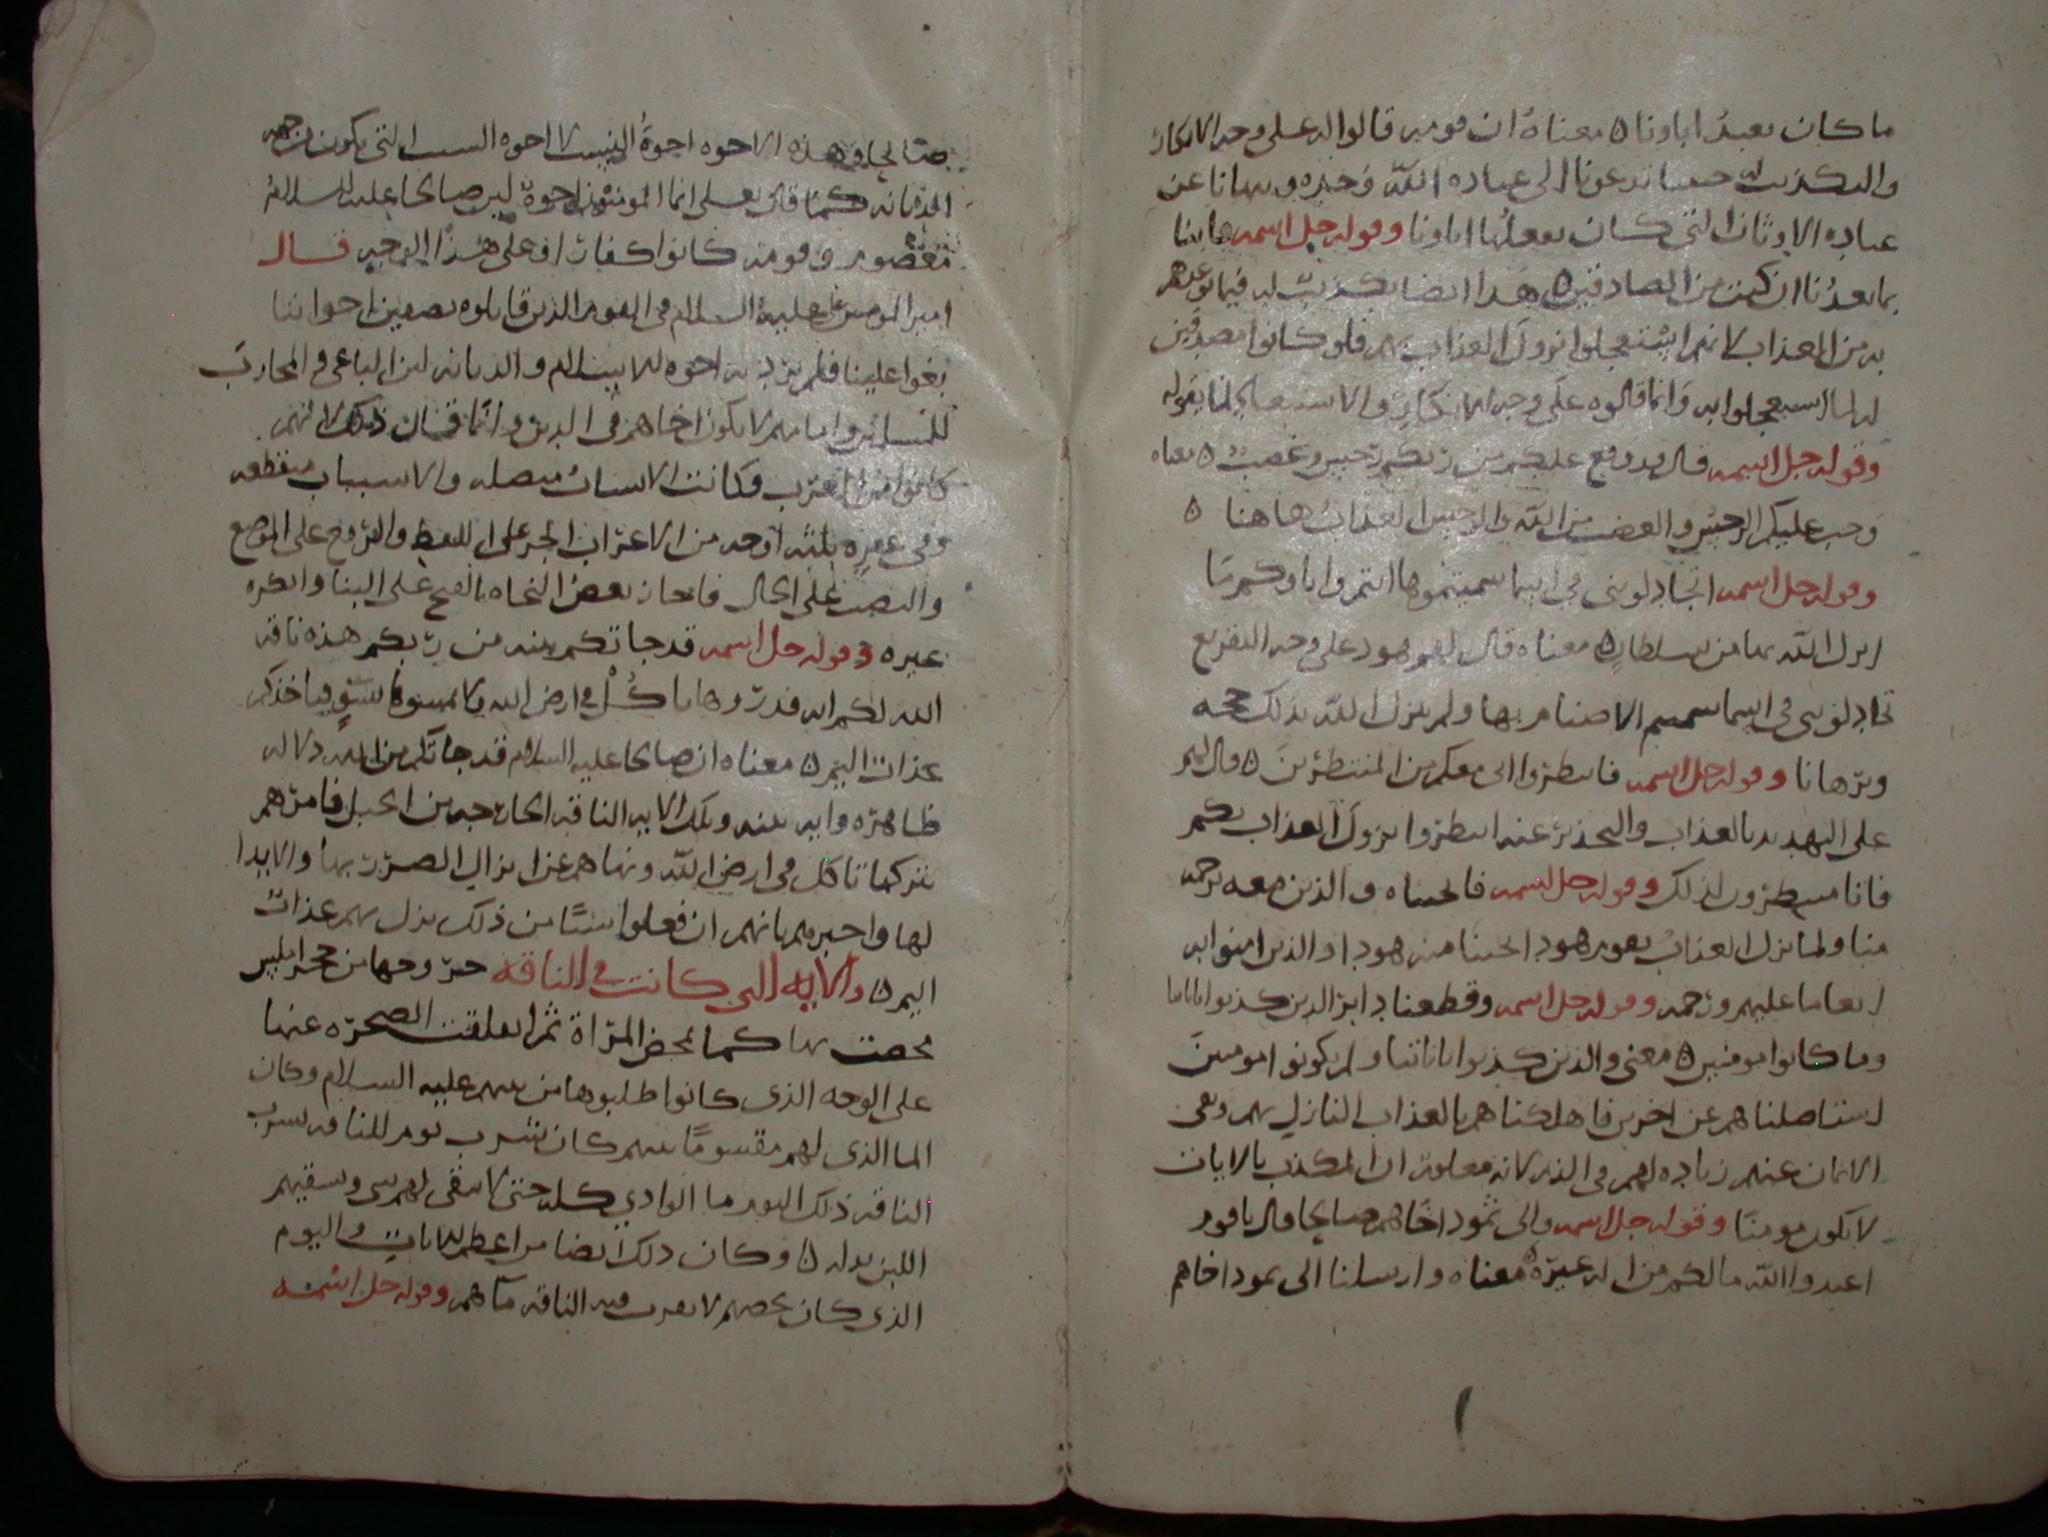 ما كان يعبد اباونا ه معناه ان قومه قالوا له على وجه الانكار
والتكذيب له جيتنا تدعونا الى عباده الله وحده وتنهانا عن
عباده الاوثان التي كان يفعلها اباونا وقوله جل اسمه فاتنا
بما تعدنا ان كنت من الصادقين ه هذا ايضا تكذيب له فيما توعدهم
به من العذاب لانهم استعجلوا نزول العذاب بهم فلو كانوا مصدقين
له لما استعجلوا به وانما قالوه على وجه الانكار والاستبعاد لما يقوله
وقوله جل اسمه قال قد وقع عليكم من ربكم رجس وغضب ه معناه
وجب عليكم الرجس والغضب من الله والرجس العذاب هاهنا ه
وقوله جل اسمه اتجادلونني في اسما سميتموها انتم واباوكم ما
انزل الله بها من سلطان ه معناه قال لهم هود على وجه التقريع
تجادلونني في اسما سميتم الاصنام بها ولم ينزل الله بذلك حجه
وبرهانا وقوله جل اسمه فانتظروا اني معكم من المنتظرين ه قال لهم
على التهديد بالعذاب والتحذير عنه انتظروا نزول العذاب بكم
فانا منتظرون لذلك وقوله جل اسمه فانجيناه والذين معه برحمه
منا ولما نزل العذاب بقوم هود انجينا منه هودا والذين امنوا به
انعاما عليهم ورحمه وقوله جل اسمه وقطعنا دابر الذين كذبوا باياتنا
وما كانوا مومنين ه معنى والذين كذبوا باياتنا ولم يكونوا مومنين
استاصلناهم عن اخرهم فاهلكناهم بالعذاب النازل بهم ونفى
الايمان عنهم زياده لهم في الذم لانه معلوم ان المكذب بالايات
لا يكون مومنا وقوله جل اسمه والى ثمود اخاهم صالحا قال يا قوم
اعبدوا الله ما لكم من اله غيره ه معناه وارسلنا الى ثمود اخاهم
صالحا وهذه الاخوه اخوة النسب لا اخوه السبب التي يكون من جهه
الديانه كما قال تعلى انما المومنون اخوة لان صالحا عليه السلام
معصوم وقومه كانوا كفارا وعلى هذا الوجه قال
امير المومنين عليه السلام في القوم الذين قاتلوه بصفين اخواننا
بغوا علينا فلم يرد به اخوه الاسلام والديانه لان الباغي والمحارب
للمسلمين وامامهم لا يكون اخاهم في الدين وانما قال ذلك لانهم
كانوا من العرب وكانت الانساب متصله والاسباب منقطعه
وفي غيره ثلثه اوجه من الاعراب الجر على اللفظ والرفع على الموضع
والنصب على الحال فاجاز بعض النحاه الفتح على البنا وانكره
غيره وقوله جل اسمه قد جاتكم بينه من ربكم هذه ناقه
الله لكم ايه فذروها تاكل في ارض الله ولا تمسوها بسوء فياخذكم
عذاب اليم ه معناه ان صالحا عليه السلام قد جاتكم من الله دلاله
ظاهره وايه بينه وتلك الايه الناقه الخارجه من الجبل فامرهم
بتركها تاكل في ارض الله ونهاهم عن انزال الضرر بها والايذا
لها واخبرهم بانهم ان فعلوا شيئا من ذلك نزل بهم عذاب
اليم ه والايه التي كانت في الناقه خروجها من حجر املس
تمخضت بها كما تمخض المراة ثم انفلقت الصخره عنها
على الوجه الذي كانوا طلبوها من نبيهم عليه السلام وكان
الما الذي لهم مقسوما بينهم كان شرب يوم للناقه تشرب
الناقه ذلك اليوم ما الوادي كله حتى لا يبقى لهم شي وتسقيهم
اللبن بدله ه وكان ذلك ايضا من اعظم الايات واليوم
الذي كان يخصهم لا تقرب فيه الناقه ماهم وقوله جل اسمه